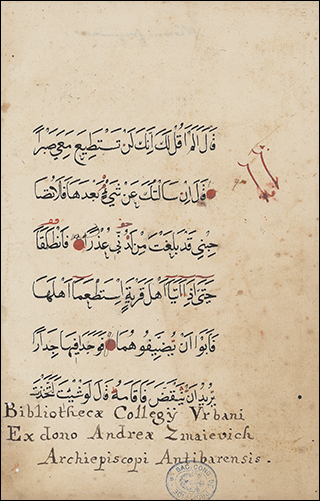 قَالَ اَلَمْ اَقُلْ لَكَ اِنَّكَ لَنْ تَسْتَطِيعَ مَعِيَ صَبْرًا
قَالَ اِنْ سَاَلْتُكَ عَنْ شَيْءٍ بَعْدَهَا فَلَا تُصَا
حِبْنِي قَدْ بَلَغْتَ مِنْ لَدُنِّي عُذْرًا فَانْطَلَقَا
حَتّٰى اِذَا اَتَيَا اَهْلَ قَرْيَةٍ اسْتَطْعَمَا اَهْلَهَا
فَاَبَوْا اَنْ يُضَيِّفُوهُمَا فَوَجَدَا فِيهَا جِدَارًا
يُرِيدُ اَنْ يَنْقَضَّ فَاَقَامَهُ قَالَ لَوْ شِئْتَ لَتَّخَذْتَ
Bibliothecæ Collegÿ Vrbani
Ex dono Andreæ Zmaievich
Archiepiscopi Antibarensis.